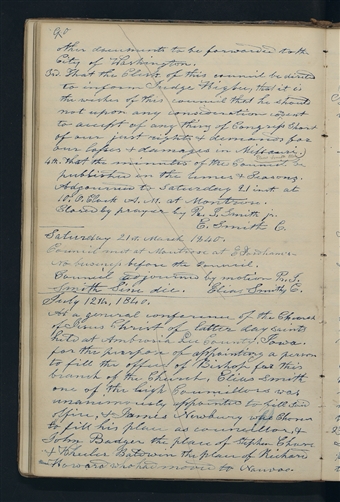 90
other documents to be forwarded to the
City of Washington.
3rd. That the Clerk of this council be directed
to inform Judge Higbee, that it is
the wishes of this council that he should
not upon any consideration consent
to accept of any thing of Congress short
of our just rights & demands for
our losses & damages in Missouri.
4th. that the minutes of the Council be
published in the Times & Seasons.
Adjourned to Saturday 21 inst at
10, O, Clock A. M. at Montrose.
Closed by prayer by J. Smith jr.
E. Smith C.
Saturday 21st March 1840.
Council met at Montrose at
No business before the Council.
Council adjourned by motion
Smith Sine die. Elias Smith, C.
July 12th, 1840.
At a general conference of the Church
of Jesus Christ of latter day saints
held at Ambrosia Lee County, Iowa.
for the purpose of appointing a person
to fill the office of Bishop for this
branch of the Church, Elias Smith
one of the high Councillors was
unanimously appointed to fill that
office, & James Newbury was chosen
to fill his place as councillor, &
John Badger the place of Stephen Chase
& Wheeler Baldwin the place of Richard
Howard who had moove to Nauvoo.